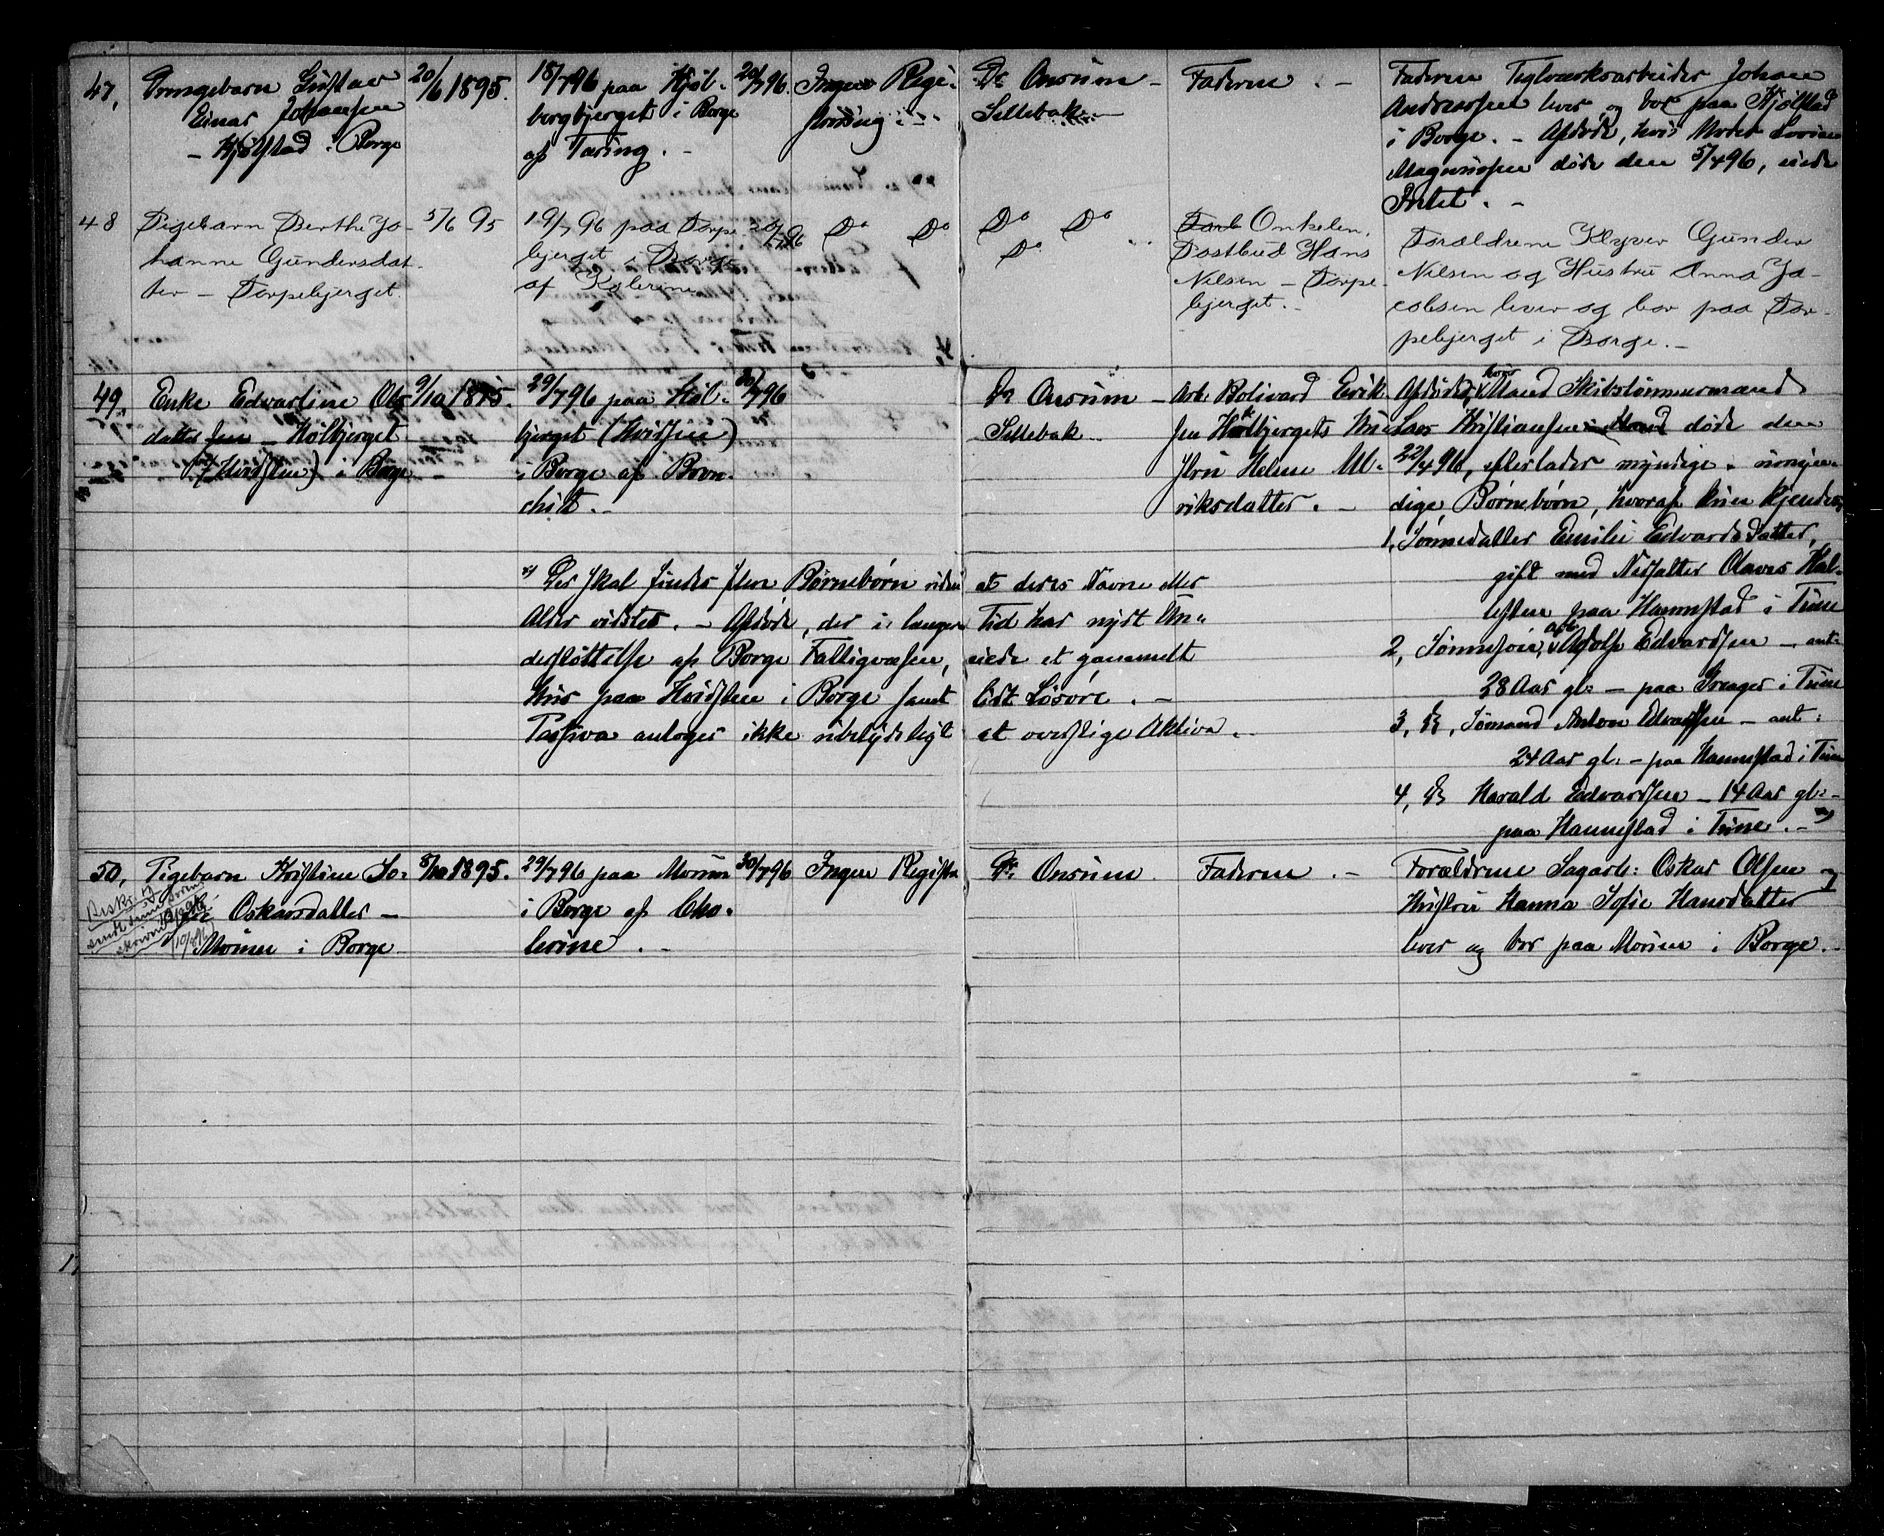 47, Drengebarn Gustav
Einar Johansen
– Kjølstad i Borge
20/6 1895.
18/7 96 paa Kjøl-
bergbjerget i Borge
af Tæring. –
20/7 96.
Ingen Regi-
strering. –
Do Onsum –
Sellebak –
Faderen. –
Faderen Teglværksarbeider Johan
Andreassen lever og bor paa Kjølstad
i Borge. – Afdøde, hvis Moder Lovise
Magnussen døde den 5/4 96, eiede
Intet. –
48 Pigebarn Berthe Jo-
hanne Gundersdat-
ter – Torpebjerget.
5/6 95
19/7 96 paa Torpe
bjerget i Borge
af Kolerine
20/7 96
Do Do
Do Do
Do
Onkelen,
Postbud Hans
Nilsen – Torpe-
bjerget. –
Forældrene Gunder
Nilsen og Hustru Anna Ja-
cobsen lever og bor paa Tor-
pebjerget i Borge. –
49, Enke Edvardine Ols-
datter – Kølbjerget
(Hvidsten) i Borge
29/7 96 paa Køl-
bjerget (Hvidsten)
i Borge af Bron-
chit. –
30/7 96
Do Onsum –
Sellebak –
Arb. Bolivard Erik-
sen Kølbjergets Hu-
stru Helene Ul-
riksdatter. –
Afdøde, hvis Mand Skibstømmermand
Lars Kristiansen døde den
22/4 96, efterlader myndige umyn-
dige Børnebørn, hvoraf kun kjendes
1, Sønnedatter Emilie Edvardsdatter,
gift med Olaves Hal-
paa Hannestad i Tune
2, Sønnesøn, Adolf Edvardsen – ant.
28 Aar gl. – paa Greager i Tune
3, do, Sømand Anton Edvardsen – ant.
24 Aar gl. – paa Hannestad i Tune
4, do Harald Edvardsen – 14 Aar gl. –
paa Hannestad i Tune. – x)
x) Der skal findes flere Børnebørn uden at deres Navne eller
Alder vidstes. – Afdøde, der i længere Tid har nydt Un-
derstøttelse af Borge Fattigvæsen, eiede et gammelt
Hus paa Hvidsten i Borge samt lidt Løsøre. –
Passiva antages ikke ubetydeligt at overstige Aktiva. –
50, Pigebarn Kristine So-
fie Oskarsdatter –
Moum i Borge –
5/10 1895.
29/7 96 paa Moum
i Borge af Cho-
lerine. –
30/7 96
Ingen Registr.
Do Onsum.
Faderen. –
Forældrene Sagarb: Oskar Olsen og
Hustru Hanna Sofie Hansdatter
lever og bor paa Moum i Borge. –